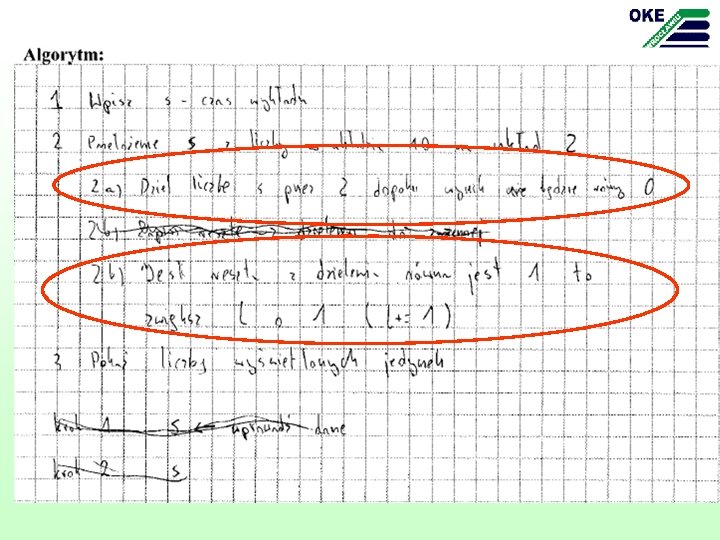 OKE
WROCŁAWIU
Algorytm:
1 Wpisz s - czas wykładu
2 Przełożenie s z liczby układu 10 na układ 2
2a) Dziel liczbę s przez 2 dopoki wynik nie będzie równy 0
2b) Zapisz resztę z dzielenia
2b) Jeśli reszta z dzielenia równa jest 1 to
zwiększ l o 1 (l+=1)
3 Pokaż liczbę wyświetlonych jedynek
krok 1 s ← wprowadź dane
krok 2 s